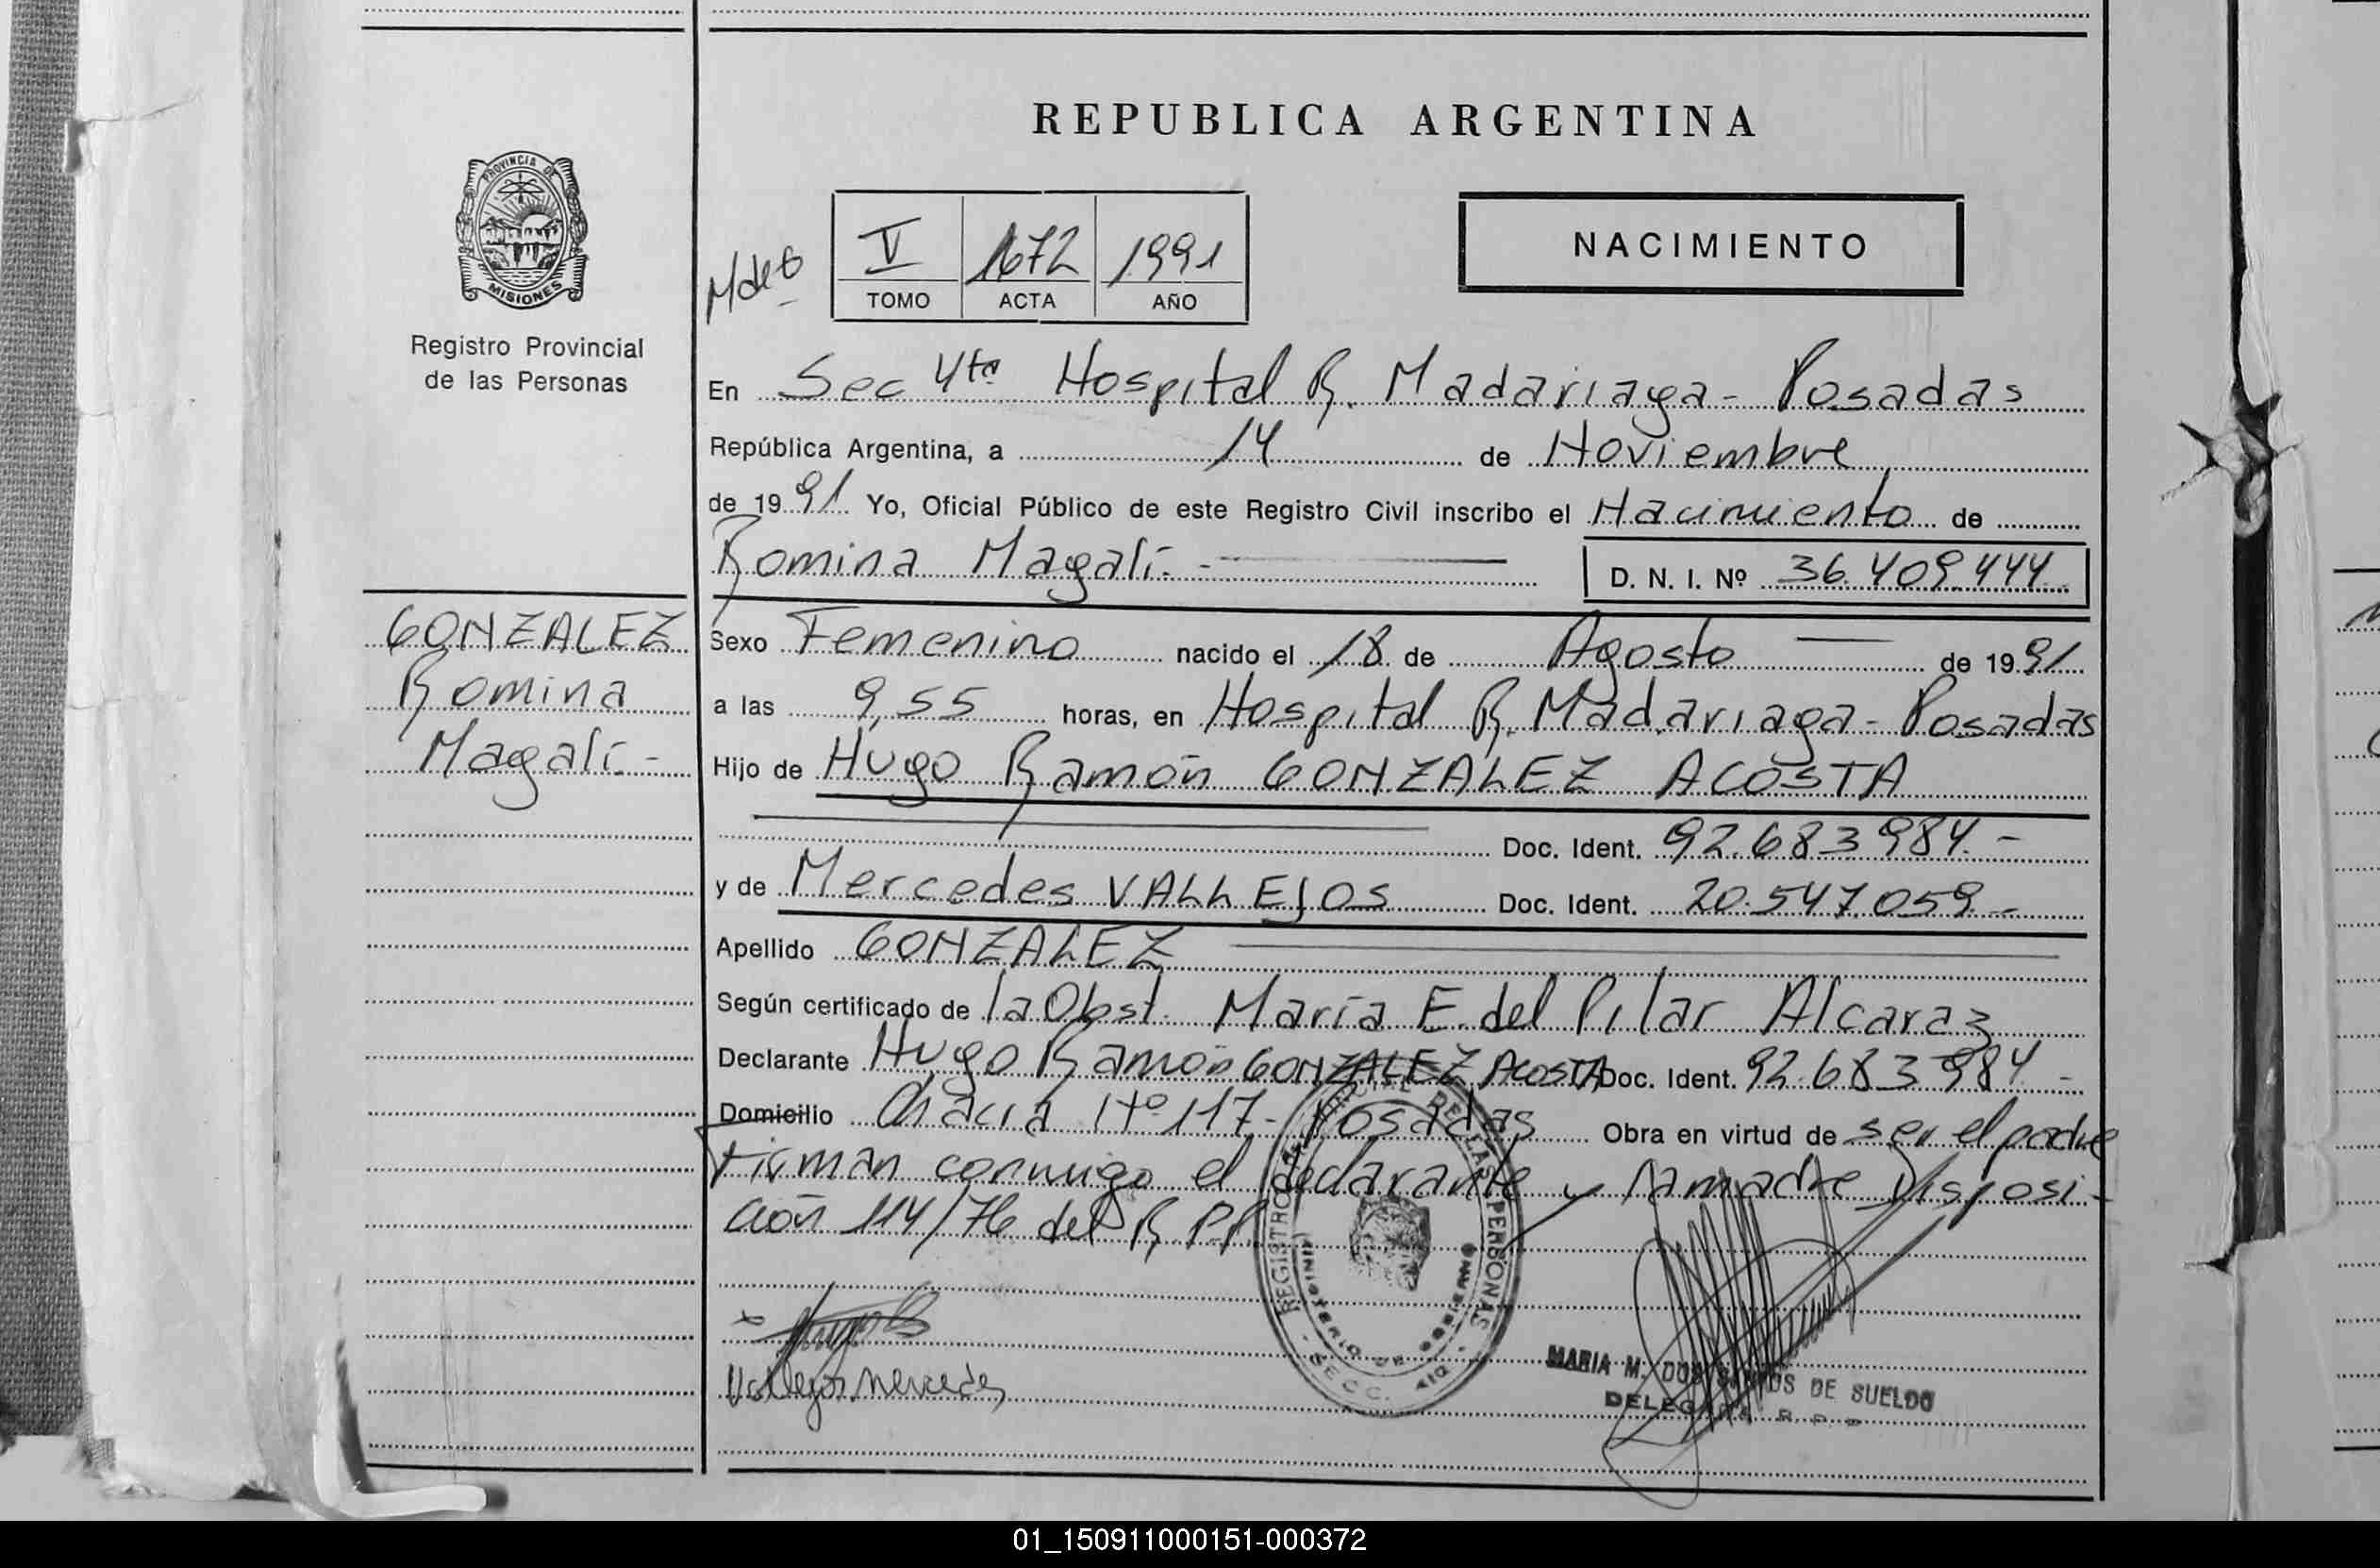 REPUBLICA ARGENTINA
PROVINCIA DE
MISIONES
Registro Provincial
de las Personas
V 1672 1991
TOMO ACTA AÑO
NACIMIENTO
En Sec 4ta Hospital R. Madariaga - Posadas
República Argentina, a 14 de Noviembre
de 1991 Yo, Oficial Público de este Registro Civil inscribo el Nacimiento de
Romina Magalí.- D. N. I. Nº 36.409.444
GONZALEZ
Romina
Magalí.-
Sexo Femenino nacido el 18 de Agosto de 1991
a las 9,55 horas, en Hospital R. Madariaga - Posadas
Hijo de Hugo Ramón GONZALEZ ACOSTA
Doc. Ident. 92.683.984.-
y de Mercedes VALLEJOS Doc. Ident. 20.547.059.-
Apellido GONZALEZ
Según certificado de la Obst. María E. del Pilar Alcaraz
Declarante Hugo Ramón GONZALEZ ACOSTA Doc. Ident. 92.683.984.-
Domicilio Chacra Nº 117- Posadas Obra en virtud de ser el padre
Firman conmigo el declarante y la madre Disposi-
ción 114/76 del R.P.P.
REGISTRO PROVINCIAL DE LAS PERSONAS
MINISTERIO DE GOBIERNO
SECC. 4ta
Vallejos Mercedes
MARIA M. DOS SANTOS DE SUELDO
DELEGADA R. P. P.
01_150911000151-000372